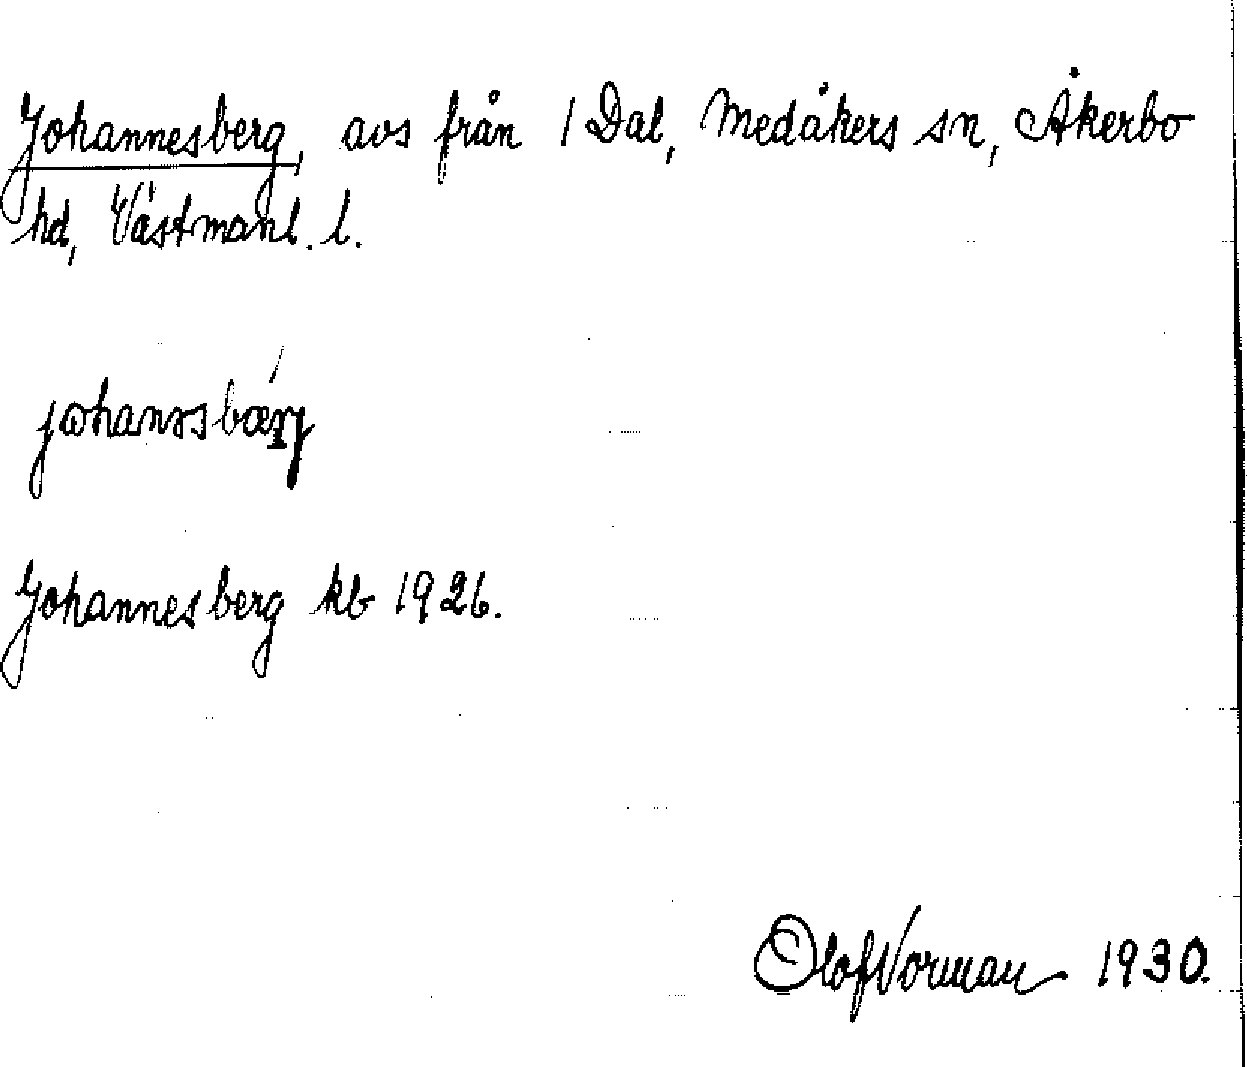 Johannesberg, avs från 1 Dal, Medåkers sn, Åkerbo
hd, Västmanl. l.
Johannesberg kb 1926.
Olof Norman 1930.